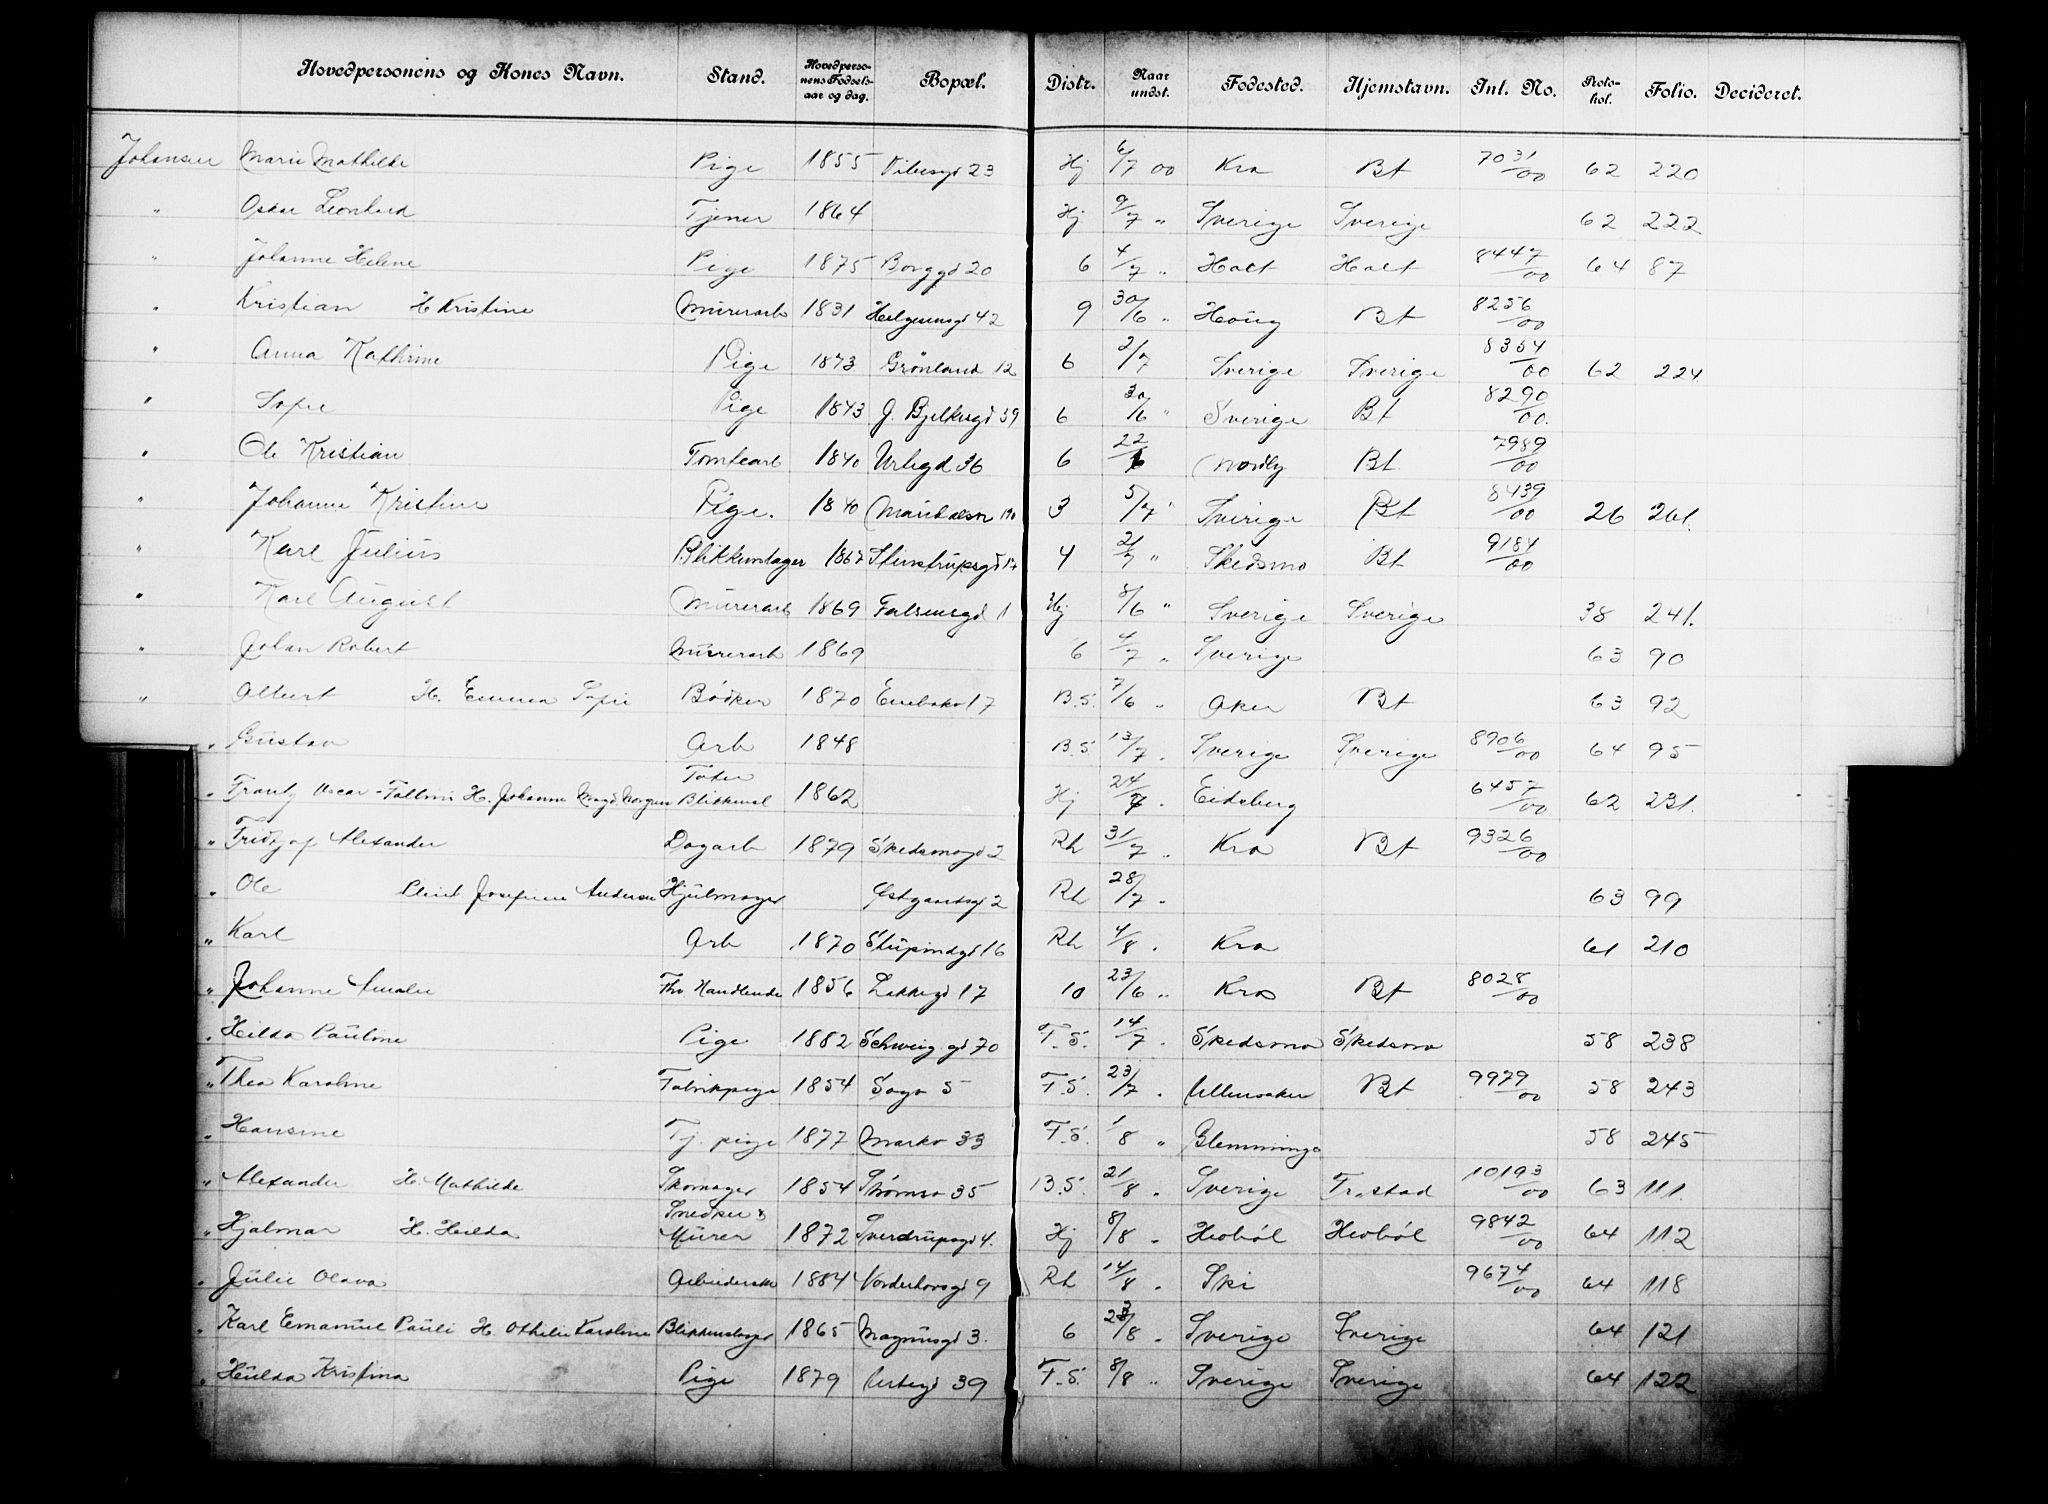 Hovedpersonens og Kones Navn. Stand. Hovedpersonens Fødselsaar og dag. Bopæl. Distr. Naar undst. Fødested. Hjemstavn. Int. No. Protokol. Folio. Decideret.
Johansen Marie Mathilde Pige 1855 Vibesgd 23 Hj 6/7 00 Kra Bt 7031/00 62 220
" Oskar Leonhard Tjener 1864 Hj 9/7 " Sverige Sverige 62 222
" Johanne Helene Pige 1875 Borggd 20 6 4/7 " Holt Holt 8447/00 64 87
" Kristian H Kristine Murerarb 1831 Helgesensgd 42 9 30/6 " Houg Bt 8256/00
" Anna Kathrine Pige 1873 Grönland 12 6 2/7 Sverige Sverige 8354/00 62 224
" Sofie Pige 1843 J. Bjelkesgd 59 6 30/6 " Sverige Bt 8290/00.
" Ole Kristian Tomtearb 1840 Urtegd 36 6 22/6 Nordby Bt. 7989/00
" Johanne Kristine Pige. 1840 3 5/7 " Sverige Bt 8439/00 26 261.
" Karl Julius Blikkenslager 1867 Stenstrupsgd 17 4 21/7 " Skedsmo Bt 9184/00
" Karl August Murerarb 1869 Falsensgd 11 Hj 8/6 " Sverige Sverige 38 241.
" Johan Robert Murerarb 1869 6 4/7 " Sverige 63 90
" Albert H. Emma Sofie Bödker 1870 Enebakv 17 B.S. 7/6 " Aker Bt 63 92
" Gustav Arb 1848 B.S. 13/7 . Sverige Sverige 8906/00 64 95
" Frantz Oscar-Tallini H. Johanne Magd. Norgren Tater Blikkensl 1862 Hj 24/7 . Eidsberg 6457/00 62 231.
" Fridtjof Alexander Dagarb 1879 Skedsmogd 2 Rh 31/7 " Kra Bt 9326/00
" Ole Josefine Andersen Hjulmager Østgaardsgd 2 Rh 28/7 . 63 99
" Karl Arb 1870 Stupindgd 16 Rh 4/8 . Kra 61 210
" Johanne Amalie Fhv Handlende 1856 Lakkegd 17 10 23/6 " Kra Bt 8028/00
" Hilda Pauline Pige 1882 Schweig.gd 70 F.S. 14/7 . Skedsmo Skedsmo 58 238
" Thea Karoline Fabrikpige 1854 Sagv 5 F.S. 23/7 . Ullensaker Bt 9979/00 58 243
" Hansine Tj. pige 1877 Markv 33 F.S. 1/8 " Glemminge 58 245
" Alexander H. Mathilde Skomager 1854 Thömsv 35 B.S. 21/8 . Sverige Fr.stad 10193/00 63 111.
" Hjalmar H. Hilda Snedker & Murer 1872 Sverdrupsgd 4. Hj 8/8 . Hobøl Hobøl 9842/00 64 112
" Julie Olava Arbeiderske 1884 Vorderhovsgd 9 Rh 14/8 . Ski 9674/00 64 118
" Karl Emanuel Pauli H. Othilie Karoline Blikkenslager 1865 Magnusgd 3. 6 23/8 . Sverige Sverige 64 121
" Hulda Kristina Pige 1879 Urtegd 39 F.S. 8/8 " Sverige Sverige 64 122